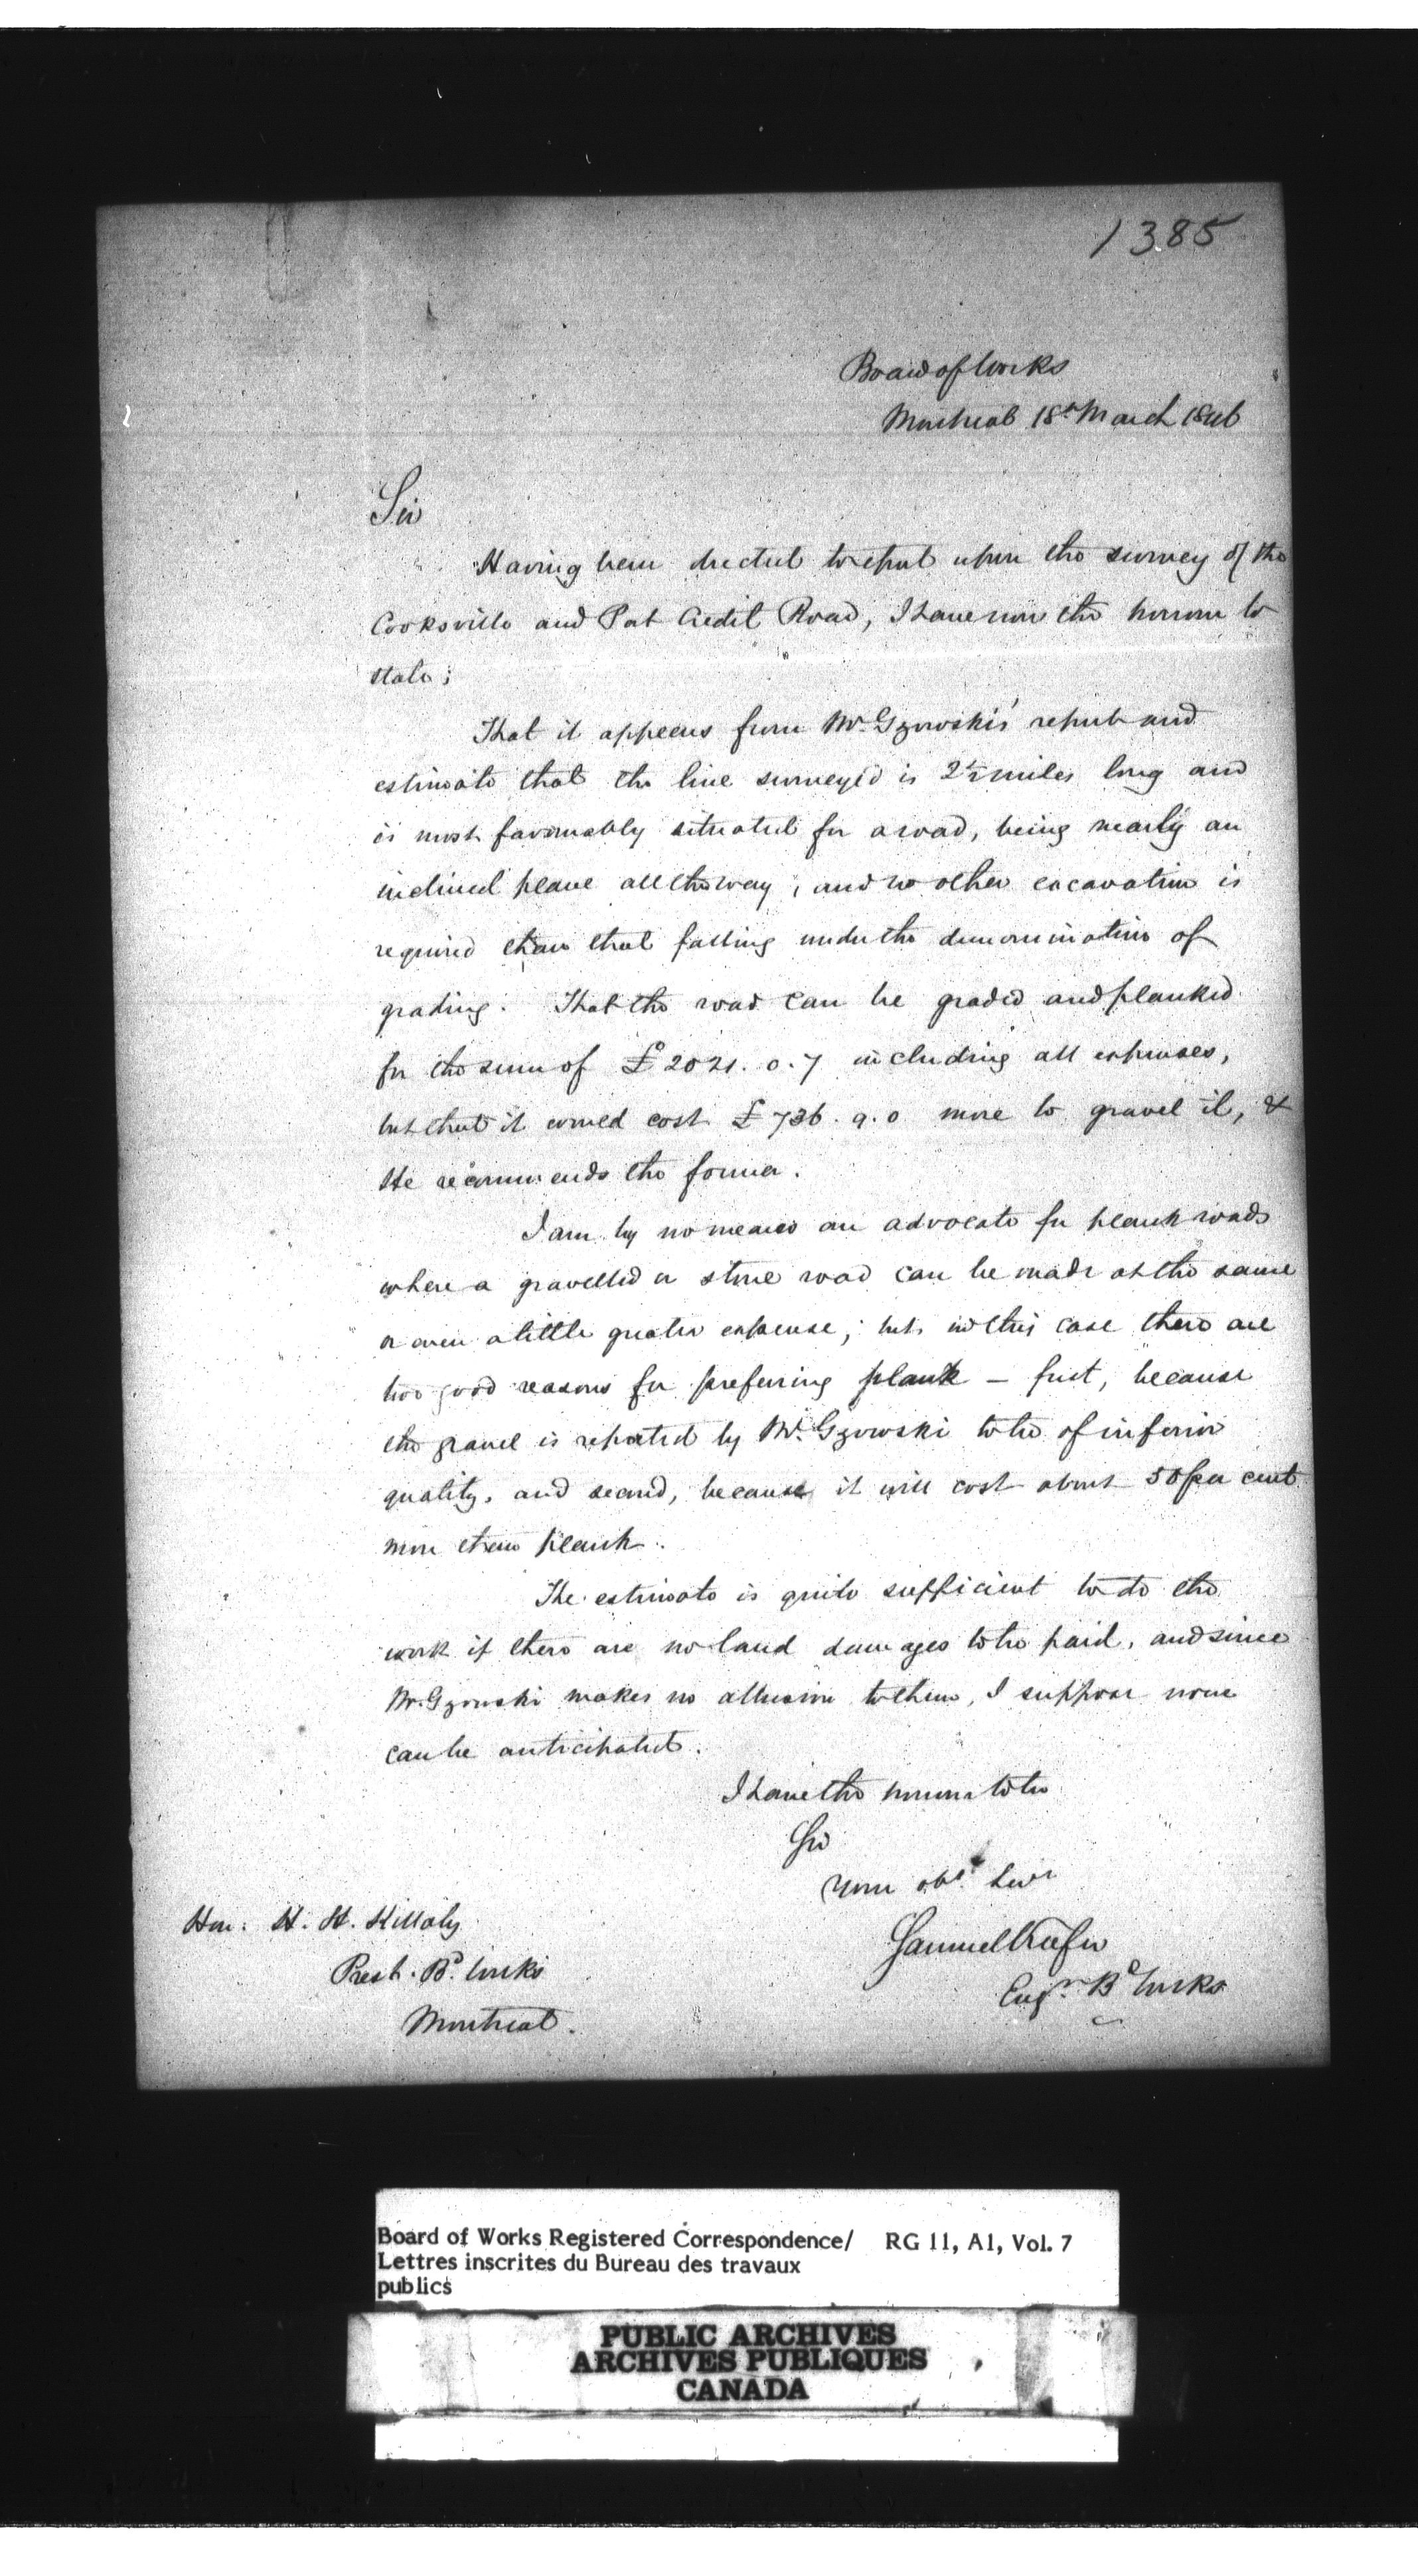 1385
Board of Works
Montreal 18th March 1846
Sir
Having been directed to report upon the survey of the
Cooksville and Port Credit Road, I have now the honour to
state;
That it appears from Mr. Gzowski's report and
estimate that the line surveyed is 2½ miles long and
is most favourably situated for a road, being nearly an
inclined plane all the way; and no other excavation is
required than that falling under the denomination of
grading. That the road can be graded and planked
for the sum of £2021.0.7 including all expenses,
but that it would cost £736.9.0 more to gravel it, &
He recommends the former.
I am by no means an advocate for plank roads
where a gravelled or stone road can be made at the same
or even a little greater expense; but in this case there are
two good reasons for preferring plank – first, because
the gravel is reported by Mr. Gzowski to be of inferior
quality, and second, because it will cost about 50 per cent
more than plank.
The estimate is quite sufficient to do the
work if there are no land damages to be paid, and since
Mr. Gzowski makes no allusion to them, I suppose none
can be anticipated.
I have the honour to be
Sir
Your obt. Servt
Samuel Keefer
Engr. Bd Works
Hon: H. H. Killaly
Prest. Bd. Works
Montreal.
Board of Works Registered Correspondence/ RG 11, A1, Vol. 7
Lettres inscrites du Bureau des travaux
publics
PUBLIC ARCHIVES
ARCHIVES PUBLIQUES
CANADA